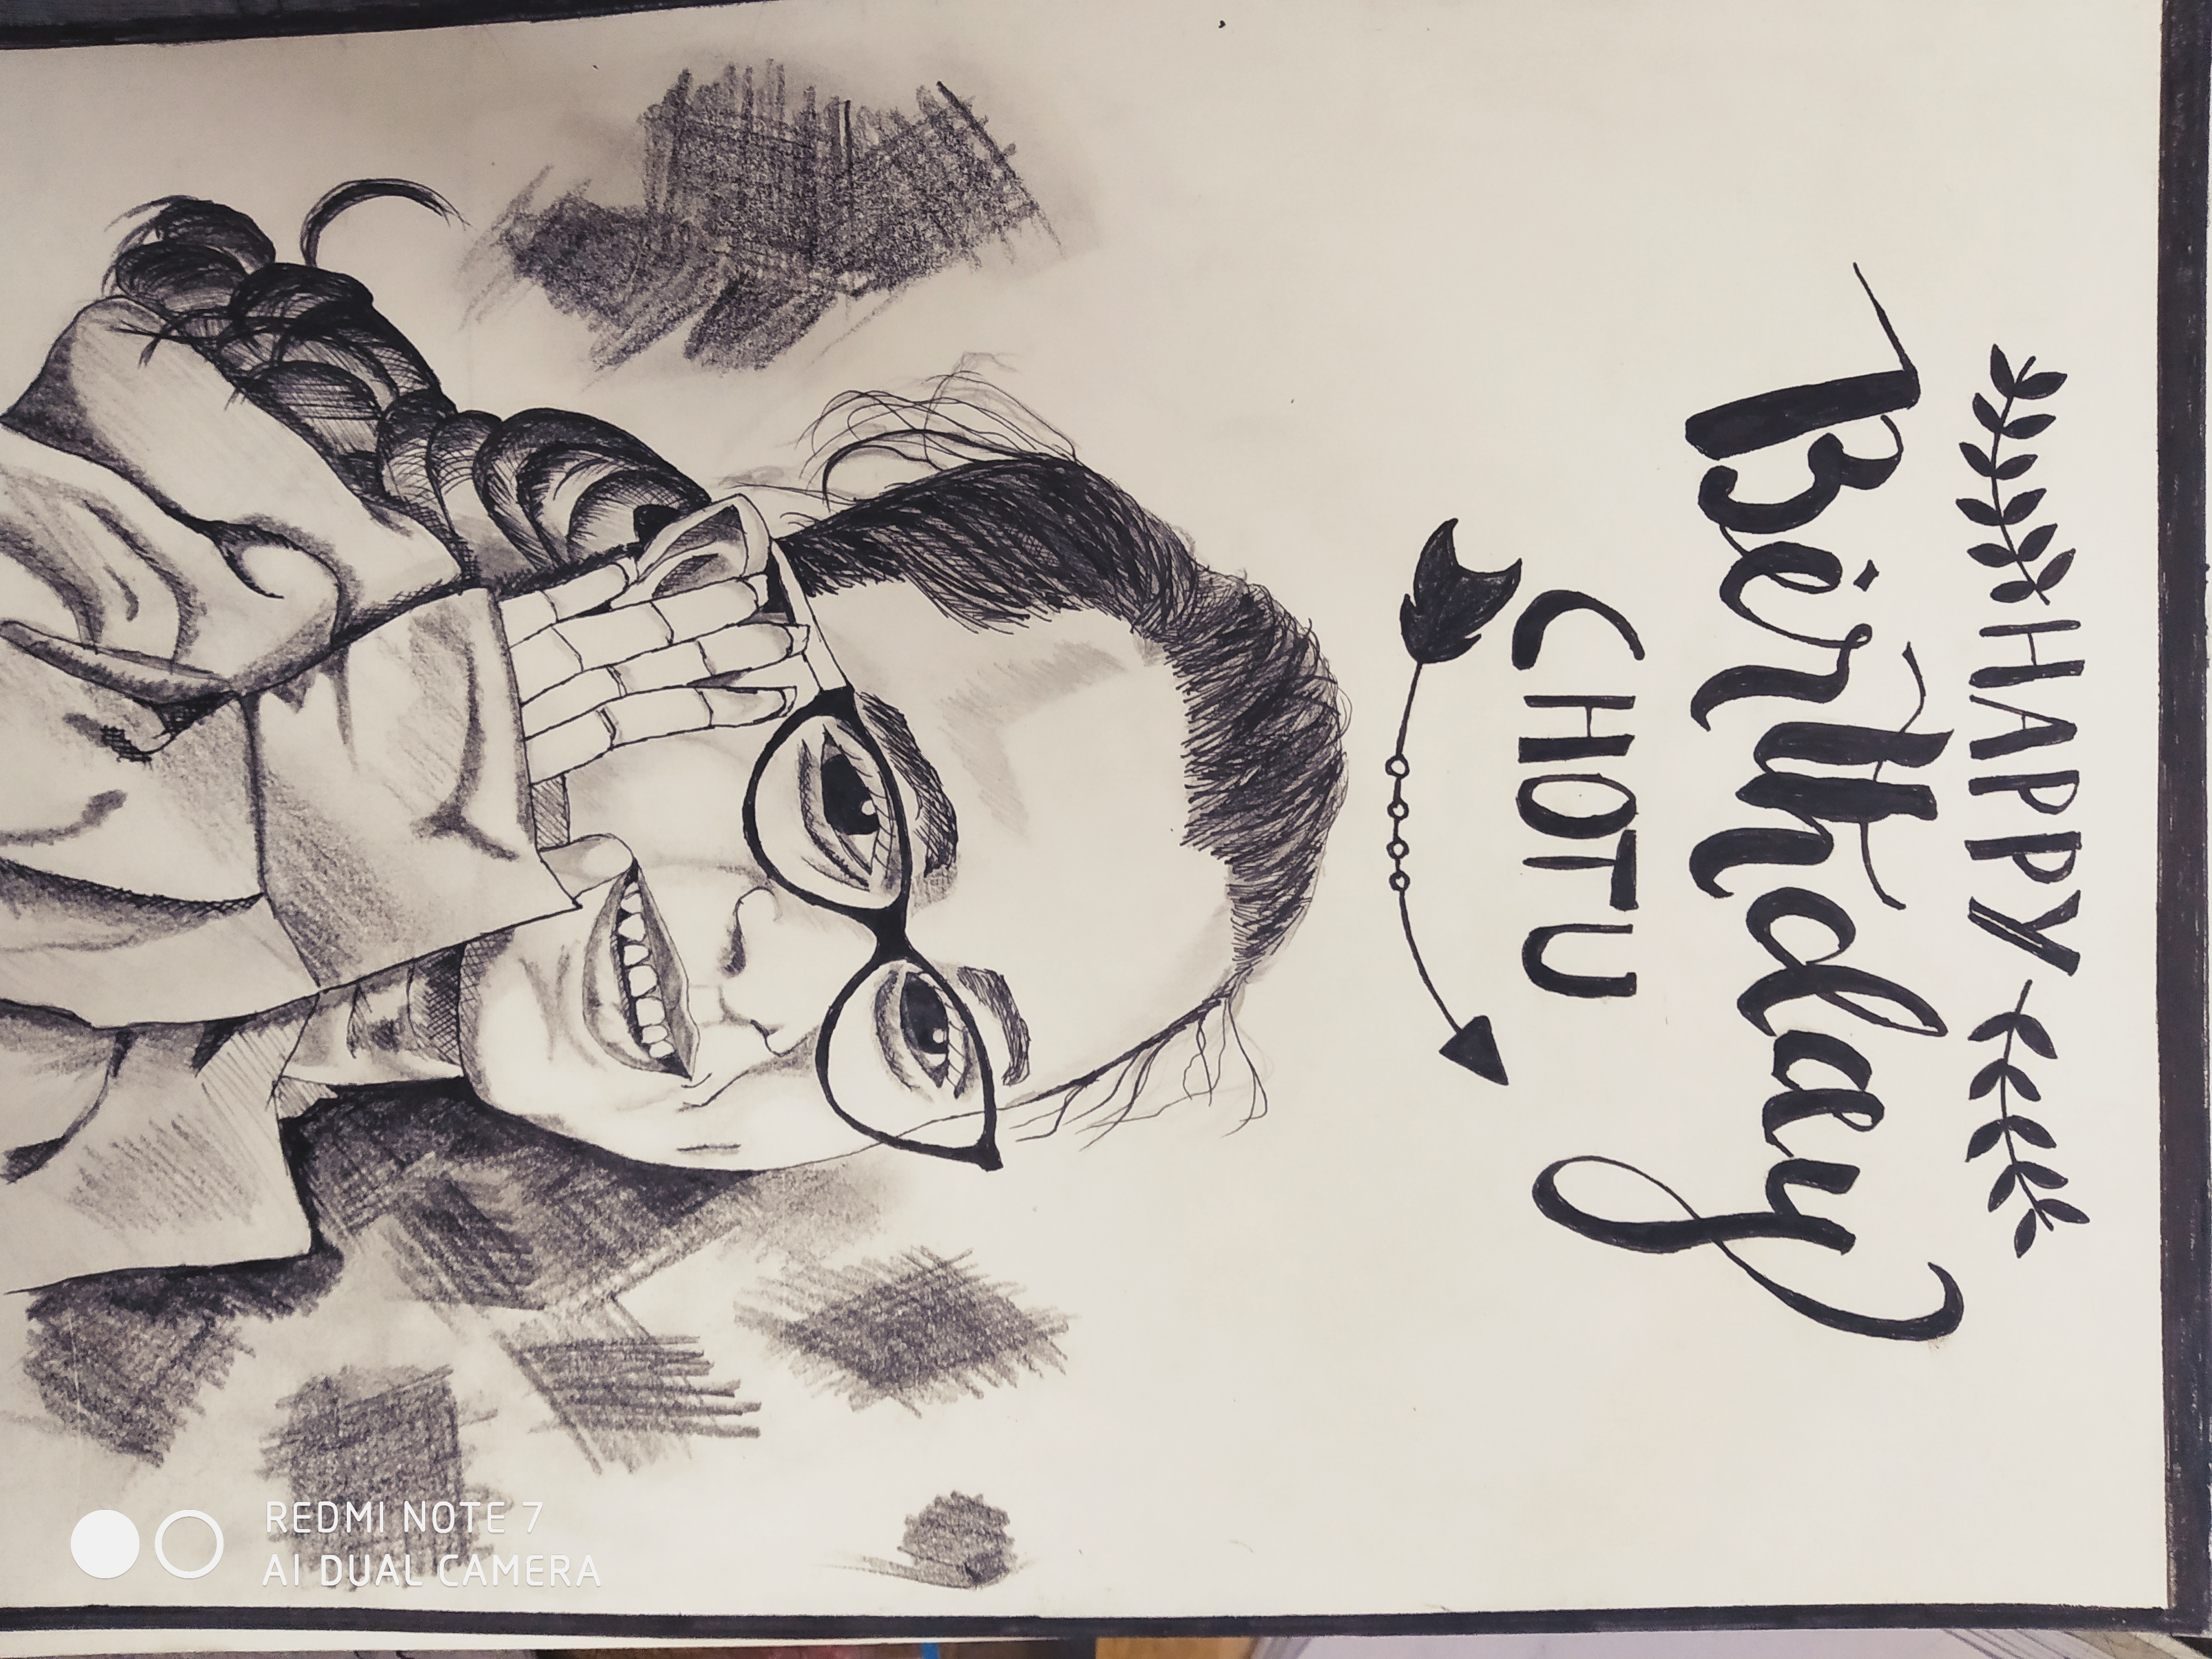 HAPPY
Birthday
CHOTU
REDMI NOTE 7
AI DUAL CAMERA